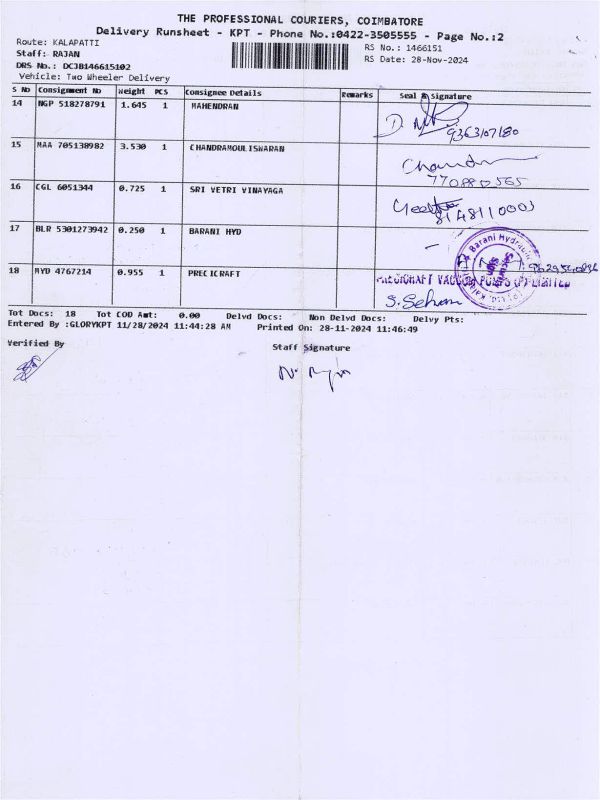 THE PROFESSIONAL COURIERS, COIMBATORE
Delivery Runsheet - KPT - Phone No.:0422-3505555 - Page No.:2
Route: KALAPATTI
RS No.: 1466151
Staff: RAJAN
RS Date: 28-Nov-2024
DRS No.: DCJB146615102
Vehicle: Two Wheeler Delivery
S No Consignment No Weight PCS Consignee Details Remarks Seal & Signature
14 NGP 518278791 1.645 1 MAHENDRAN
9363107180
15 MAA 705138982 3.530 1 CHANDRAMOULISWARAN
770880565
16 CGL 6051344 0.725 1 SRI VETRI VINAYAGA
8148110003
17 BLR 5301273942 0.250 1 BARANI HYD
Barani Hydraulics
18 MYD 4767214 0.955 1 PRECICRAFT
PRECICRAFT VACUUM PUMPS (P) LIMITED
Tot Docs: 18 Tot COD Amt: 0.00 Delvd Docs: Non Delvd Docs: Delvy Pts:
Entered By :GLORYKPT 11/28/2024 11:44:28 AM Printed On: 28-11-2024 11:46:49
Verified By Staff Signature